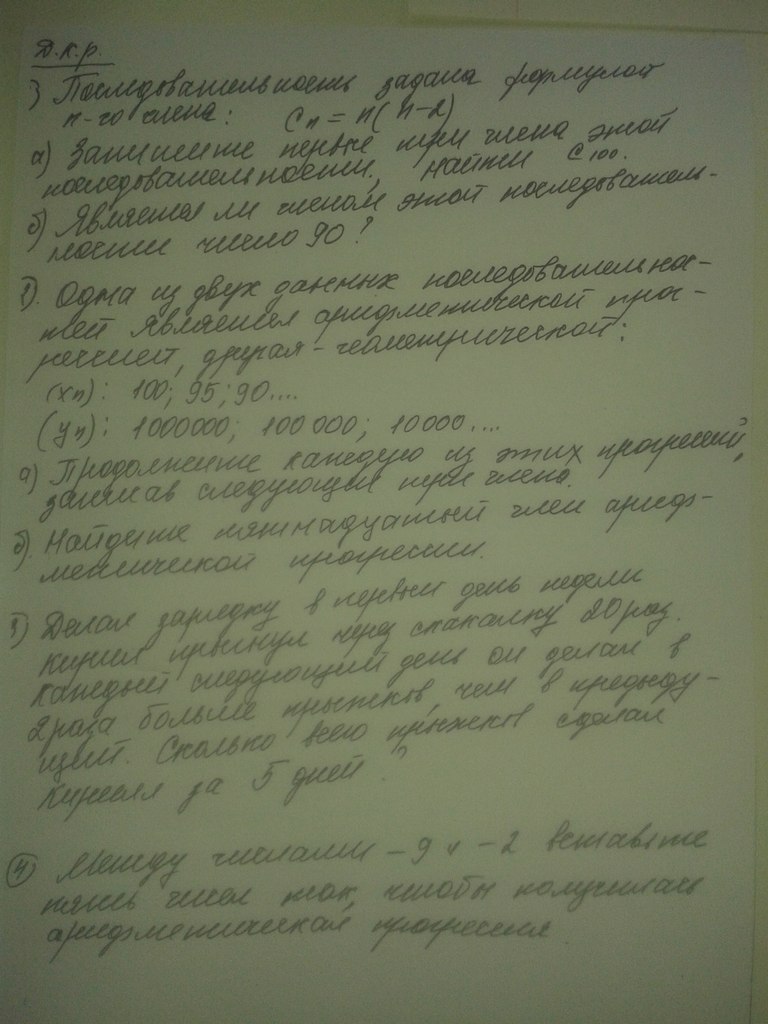 Д.к.р.
) Последовательность задана формулой
n-го члена: Cn = n(n-2)
а) Запишите первые три члена этой
последовательности, найти C100.
б) Является ли членом этой последователь-
ности число 90?
2). Одна из двух данных последовательнос-
тей является арифметической прог-
рессией, другая - геометрической:
(xn): 100; 95; 90....
(yn): 1000000; 100 000; 10000....
а) Продолжите каждую из этих прогрессий,
записав следующие три члена.
б). Найдите пятнадцатый член ариф-
метической прогрессии.
3) Делая зарядку в первый день недели
Кирилл прыгнул через скакалку 20 раз.
Каждый следующий день он делал в
2 раза больше прыжков, чем в предыду-
щий. Сколько всего прыжков сделал
Кирилл за 5 дней?
4) Между числами -9 и -2 вставьте
пять чисел так, чтобы получилась
арифметическая прогрессия